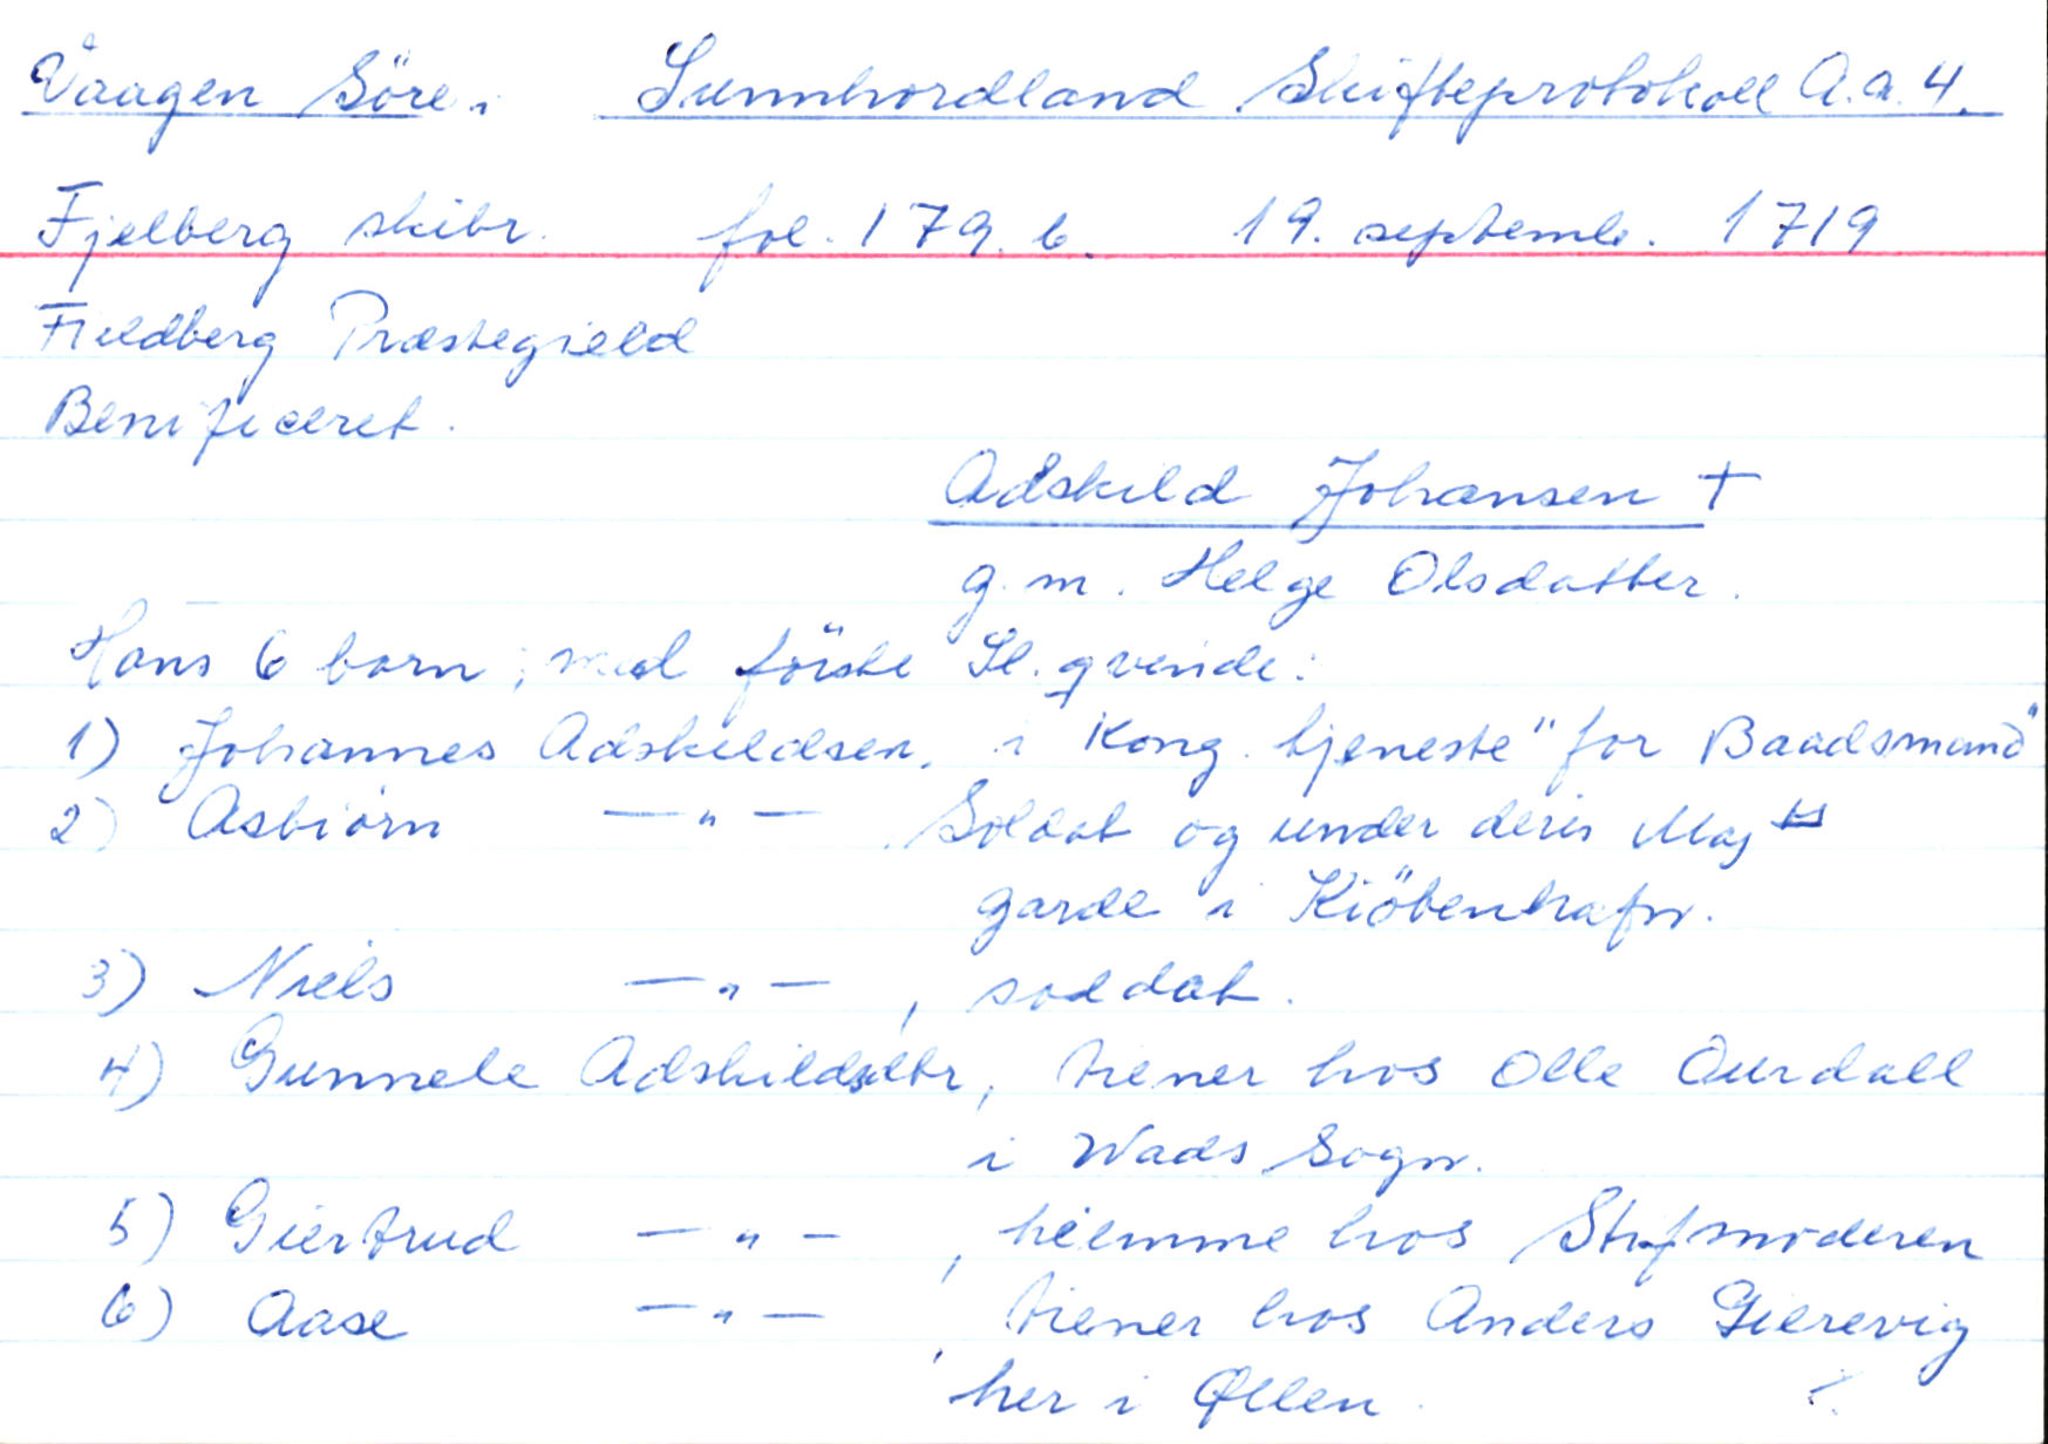 Vaagen Söre. Sunnhordland Skifteprotokoll A.a.4.
Fjelberg skibr. fol. 179.b. 19. septemb. 1719
Fieldberg Præstegield
Benificeret.
Adskild Johansen †
g.m. Helge Olsdatter.
Hans 6 born; med förste Sl. qvinde:
1) Johannes Adskildsen, i Kong. tjeneste "for Baadsmand"
2) Asbiørn —"— Soldat og under deris Maj ts
garde i Kiöbenhafn.
3) Niels —"—, soldat.
4) Gunnele Adskildsdtr, tiener hos Olle Ourdall
i Wads Sogn.
5) Giertrud —"—, hiemme hos Stifmoderen
6) Aase —"—, tiener hos Anders Gierevig
her i Ølen.